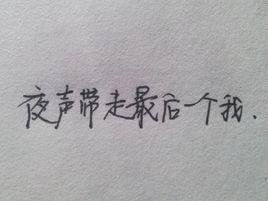 夜声带走最后一个我.